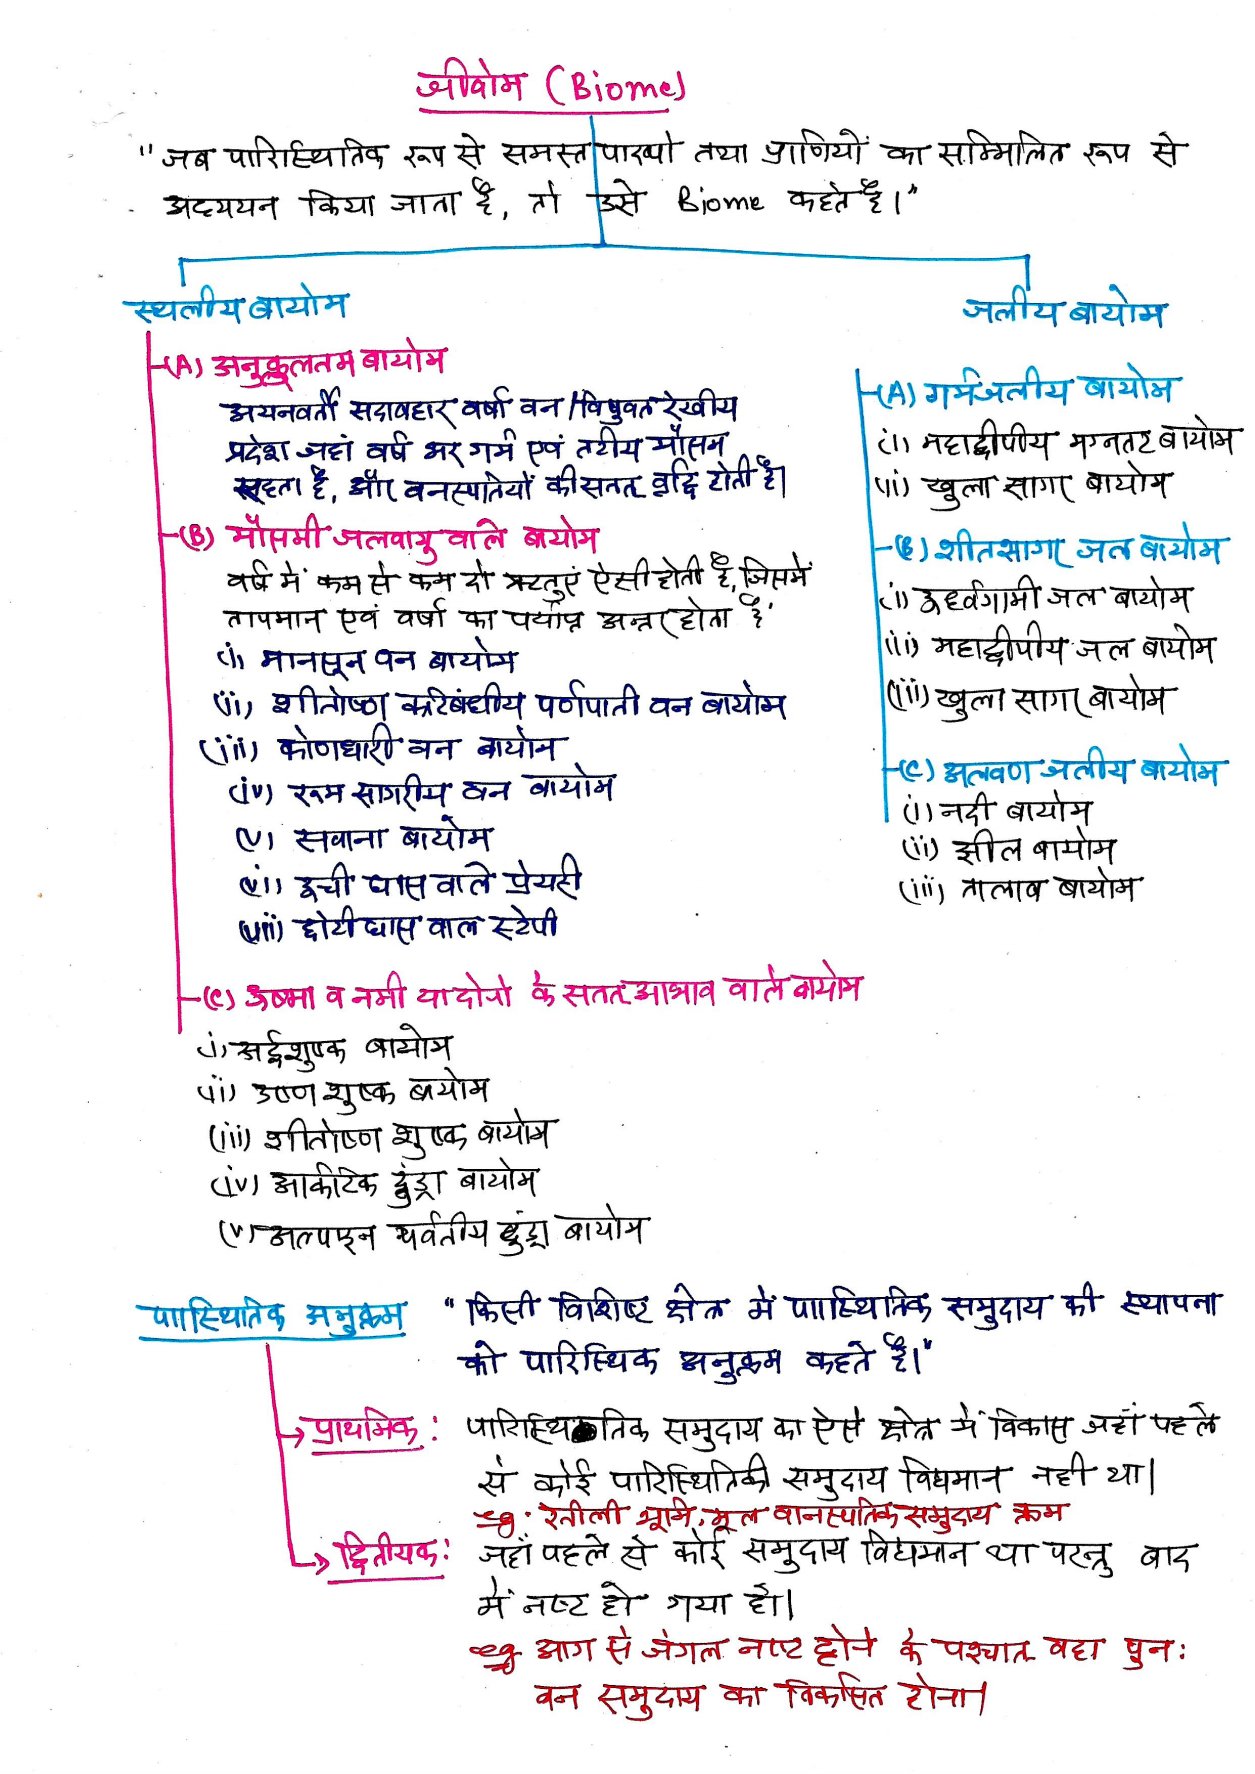 जीवोम (Biome)
"जब पारिस्थितिक रूप से समस्त पादपो तथा प्राणियों का सम्मिलित रूप से
अध्ययन किया जाता है, तो उसे Biome कहते है।"
स्थलीय बायोम
(A) अनुकुलतम बायोम
अयनवर्ती सदाबहार वर्षा वन/विषुवत रेखीय
प्रदेश जहां वर्ष भर गर्म एवं तटीय मौसम
रहता है, और वनस्पतियों की सतत् वृद्धि होती है।
(B) मौसमी जलवायु वाले बायोम
वर्ष में कम से कम दो ऋतुएं ऐसी होती है, जिसमें
तापमान एवं वर्षा का पर्याप्त अन्तर होता है
(i) मानसून वन बायोम
(ii) शीतोष्ण कटिबंधीय पर्णपाती वन बायोम
(iii) कोणधारी वन बायोम
(iv) रूम सागरीय वन बायोम
(v) सवाना बायोम
(vi) ऊची घास वाले प्रेयरी
(vii) छोटी घास वाल स्टेपी
(C) ऊष्मा व नमी या दोनो के सतत् आभाव वाले बायोम
(i) अर्द्धशुष्क बायोम
(ii) उष्ण शुष्क बायोम
(iii) शीतोष्ण शुष्क बायोम
(iv) आर्कटिक टुंड्रा बायोम
(v) अल्पाइन पर्वतीय टुंड्रा बायोम
जलीय बायोम
(A) गर्मजलीय बायोम
(i) महाद्वीपीय मग्नतट बायोम
(ii) खुला सागर बायोम
(B) शीतसागर जल बायोम
(i) ऊर्ध्वगामी जल बायोम
(ii) महाद्वीपीय जल बायोम
(iii) खुला सागर बायोम
(C) अलवण जलीय बायोम
(i) नदी बायोम
(ii) झील बायोम
(iii) तालाब बायोम
पारिस्थितिक अनुक्रम "किसी विशिष्ट क्षेत्र में पारिस्थितिक समुदाय की स्थापना
को पारिस्थिक अनुक्रम कहते है।"
प्राथमिक: पारिस्थितिक समुदाय का ऐसे क्षेत्र में विकास जहाँ पहले
से कोई पारिस्थितिकी समुदाय विद्यमान नही था।
eg. रेतीली भूमि, मूल वानस्पतिक समुदाय क्रम
द्वितीयक: जहाँ पहले से कोई समुदाय विद्यमान था परन्तु बाद
में नष्ट हो गया हो।
eg आग से जंगल नष्ट होने के पश्चात वहा पुन:
वन समुदाय का विकसित होना।